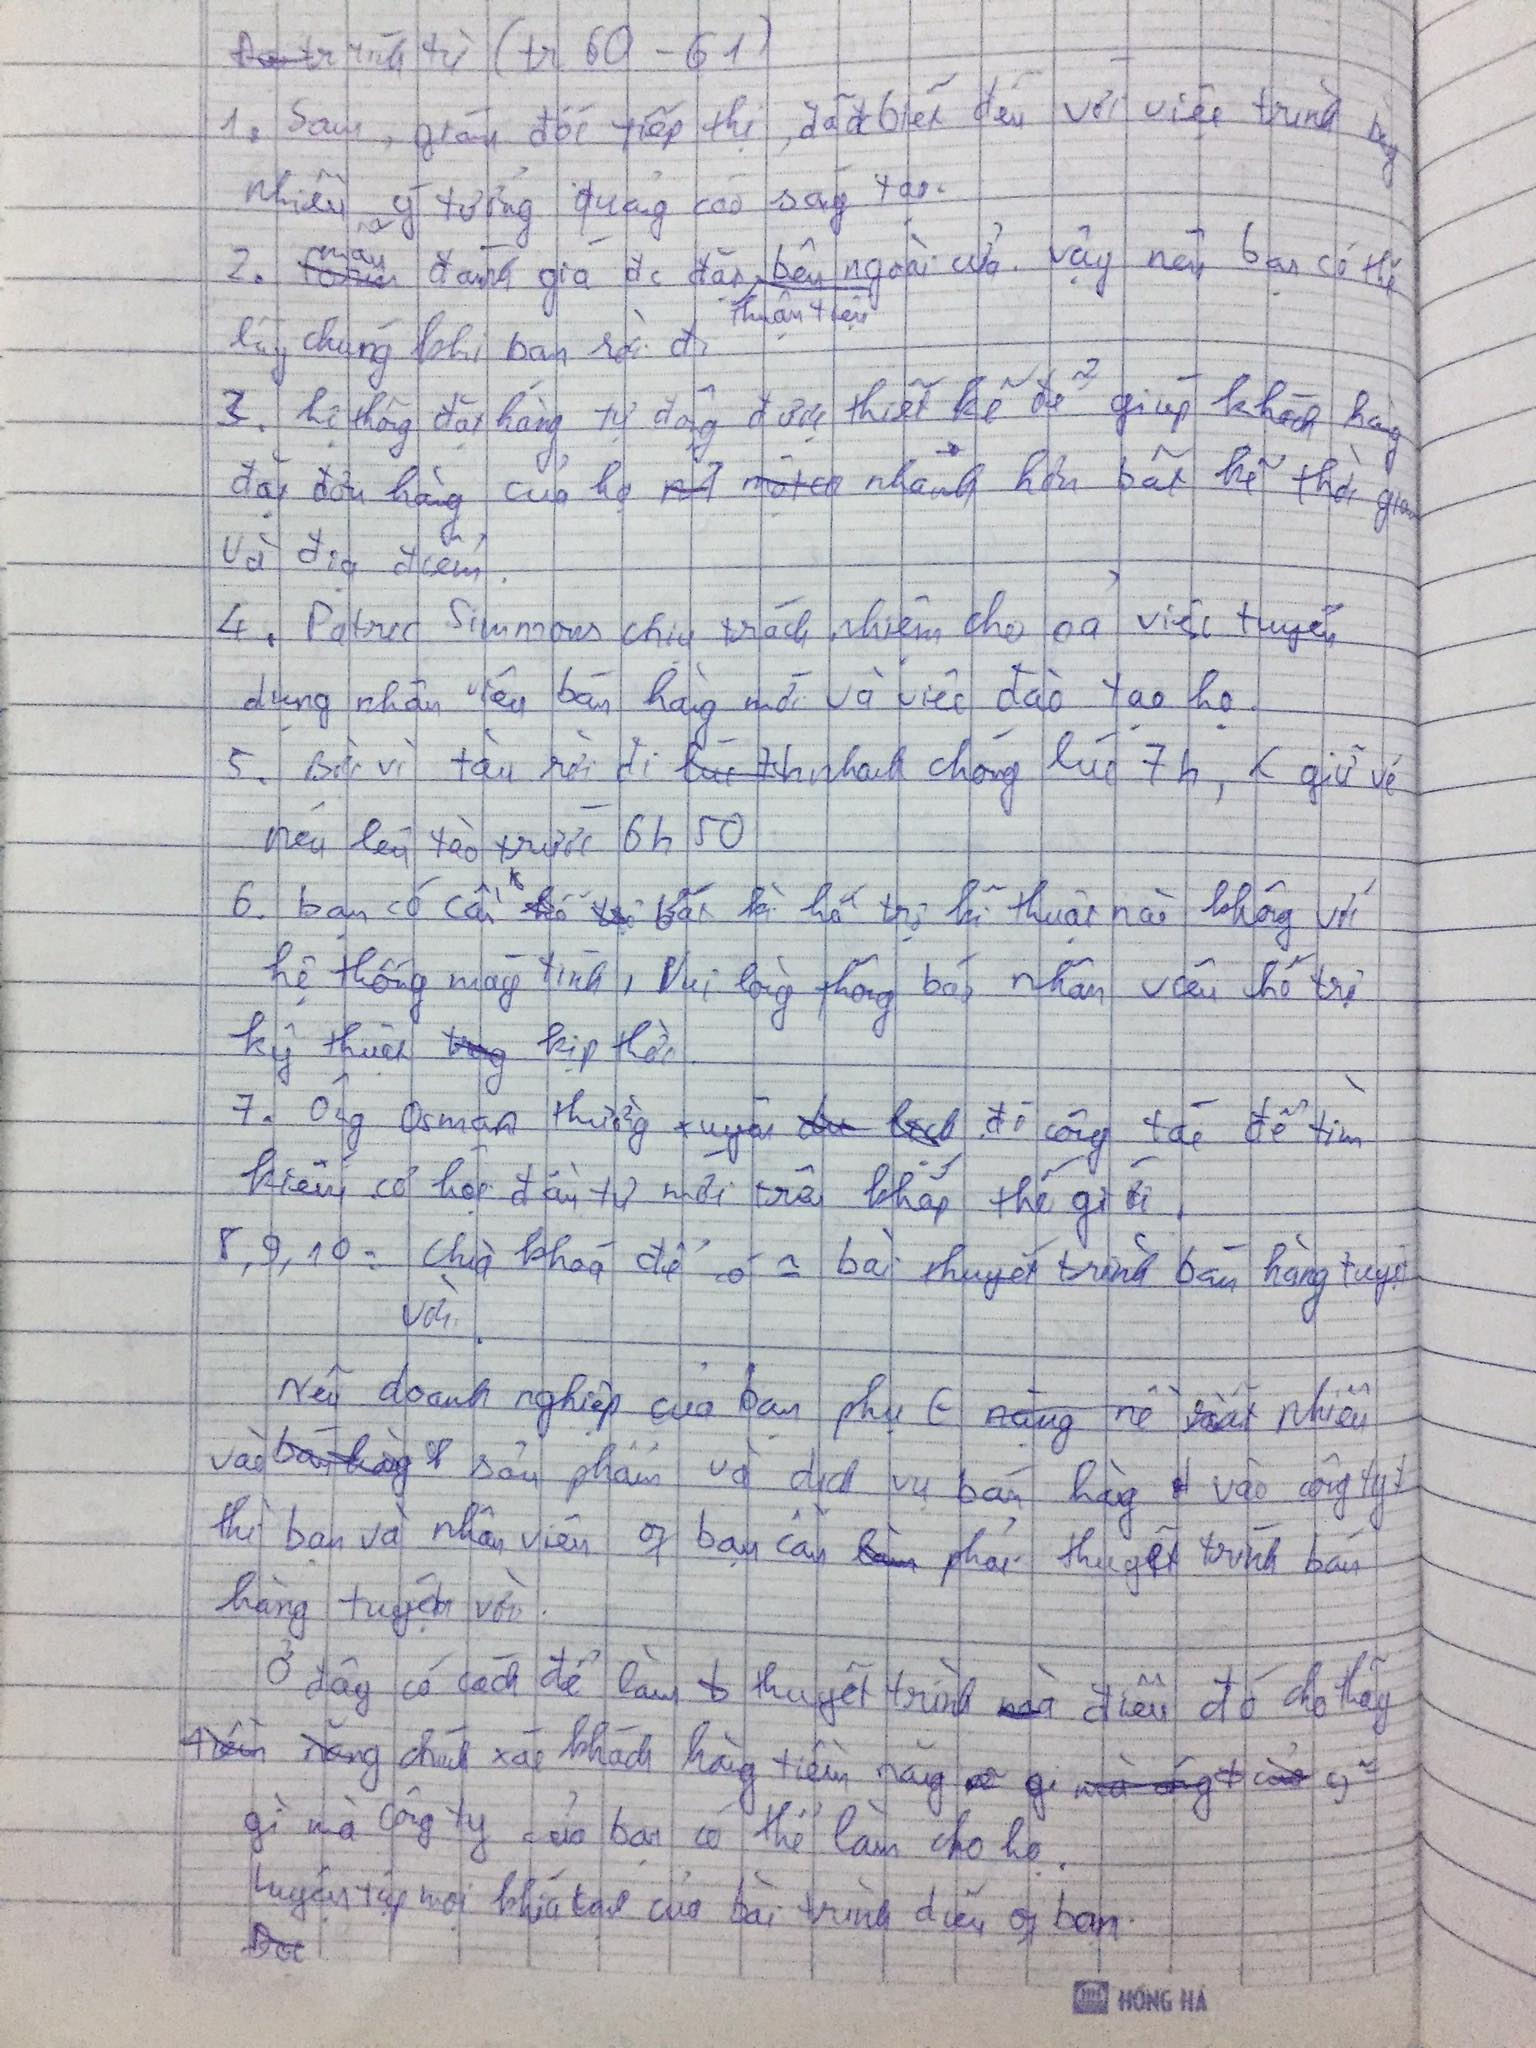 trình tự (tr 60 - 61)
1. Sam, giám đốc tiếp thị, đã đc biết đến với việc trình bày
nhiều ý tưởng quảng cáo sáng tạo.
2. mẫu đánh giá đc đặt bên ngoài cửa. vậy nên bạn có thể
thuận tiện
lấy chúng khi bạn rời đi
3. hệ thống đặt hàng tự động được thiết kế để giúp khách hàng
đặt đơn hàng của họ nhanh hơn bất kể thời gian
và địa điểm.
4. Patrec Simmons chịu trách nhiệm cho cả việc tuyển
dụng nhân viên bán hàng mới và việc đào tạo họ.
5. Bởi vì tàu rời đi nhanh chóng lúc 7h, giữ vé
nếu lên tào trước 6h 50
6. bạn có cần bất kì hỗ trợ kĩ thuật nào không với
hệ thống máy tính, Vui lòng thông báo nhân viên hỗ trợ
kỹ thuật kịp thời.
7. Ông Osman thường xuyên đi công tác để tìm
kiếm cơ hội đầu tư mới trên khắp thế giới.
8, 9, 10: Chìa khoá để có bài thuyết trình bán hàng tuyệt
vời.
Nếu doanh nghiệp của bạn phụ nặng nề rất nhiều
vào sản phẩm và dịch vụ bán hàng vào công ty
thì bạn và nhân viên of bạn cần phải thuyết trình bán
hàng tuyệt vời.
Ở đây có cách để làm thuyết trình điều đó cho thấy
chính xác khách hàng tiềm năng
gì mà công ty của bạn có thể làm cho họ.
Luyện tập mọi khía cạnh của bài trình diễn of bạn.
HỒNG HÀ